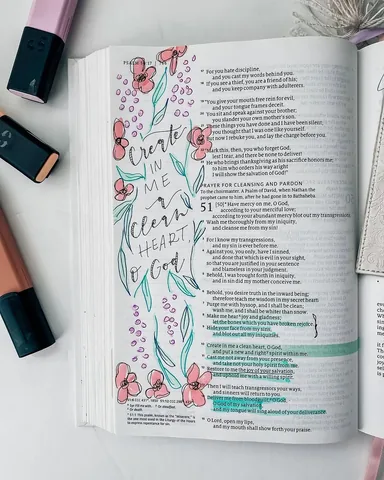 Create
IN
ME
a
clean
HEART,
O God
For you hate discipline,
and you cast my words behind you.
If you see a thief, you are a friend of his;
and you keep company with adulterers.
"You give your mouth free rein for evil,
and your tongue frames deceit.
You sit and speak against your brother;
you slander your own mother's son.
These things you have done and I have been silent;
you thought that I was one like yourself.
But now I rebuke you, and lay the charge before you.
"Mark this, then, you who forget God,
lest I tear, and there be none to deliver!
He who brings thanksgiving as his sacrifice honors me;
to him who orders his way aright
I will show the salvation of God!"
PRAYER FOR CLEANSING AND PARDON
To the choirmaster. A Psalm of David, when Nathan the
prophet came to him, after he had gone in to Bathsheba.
51 [50] Have mercy on me, O God,
according to your merciful love;
according to your abundant mercy blot out my transgressions.
Wash me thoroughly from my iniquity,
and cleanse me from my sin!
For I know my transgressions,
and my sin is ever before me.
Against you, you only, have I sinned,
and done that which is evil in your sight,
so that you are justified in your sentence
and blameless in your judgment.
Behold, I was brought forth in iniquity,
and in sin did my mother conceive me.
Behold, you desire truth in the inward being;
therefore teach me wisdom in my secret heart.
Purge me with hyssop, and I shall be clean;
wash me, and I shall be whiter than snow.
Make me hear joy and gladness;
let the bones which you have broken rejoice.
Hide your face from my sins,
and blot out all my iniquities.
Create in me a clean heart, O God,
and put a new and right spirit within me.
Cast me not away from your presence,
and take not your holy Spirit from me.
Restore to me the joy of your salvation,
and uphold me with a willing spirit.
Then I will teach transgressors your ways,
and sinners will return to you.
Deliver me from bloodguilt, O God,
O God of my salvation,
and my tongue will sing aloud of your deliverance.
O Lord, open my lips,
and my mouth shall show forth your praise.